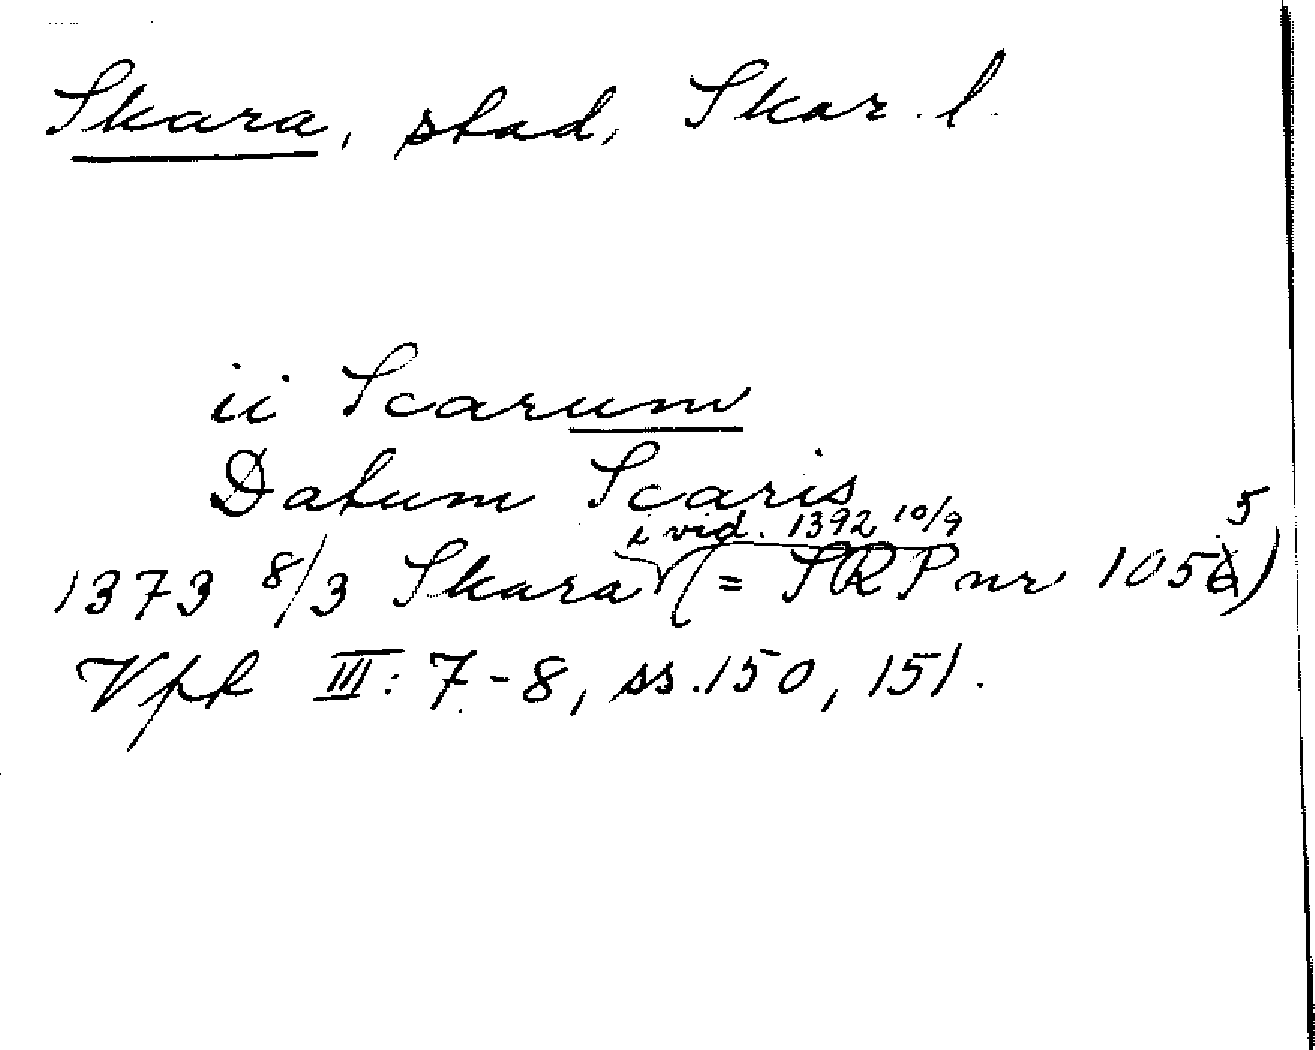 Skara, stad, Skar. l.
ii Scarum
Datum Scaris
i vid. 1392 10/9
1373 8/3 Skara (= SRP nr 1055)
Vpk III: 7-8, ss. 150, 151.